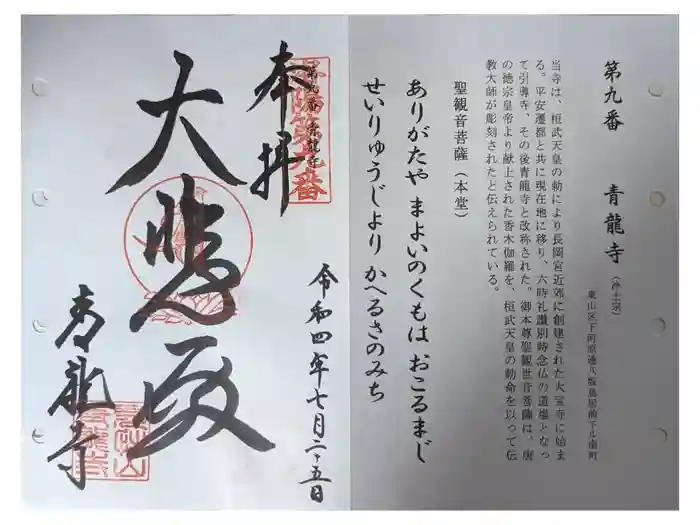 第九番 青龍寺(浄土宗)
東山区下河原通八坂鳥居前下ル南町
当寺は、桓武天皇の勅により長岡宮近郊に創建された大宝寺に始ま
る。平安遷都と共に現在地に移り、六時礼讃別時念仏の道場となっ
て引導寺、その後青龍寺と改称された。御本尊聖観世音菩薩は、唐
の徳宗皇帝より献上された香木伽羅を、桓武天皇の勅命を以って伝
教大師が彫刻されたと伝えられている。
聖観音菩薩(本堂)
ありがたや まよいのくもは おこるまじ
せいりゅうじより かへるさのみち
本拝
洛陽第九番
第九番 青龍寺
大悲殿
令和四年七月二十五日
青龍寺